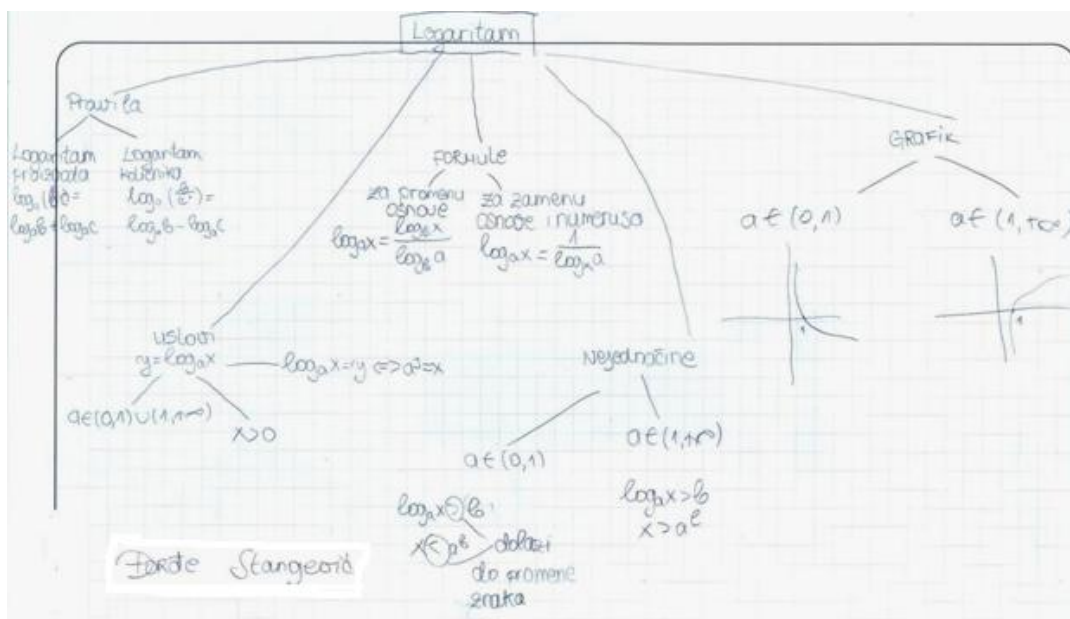 Logaritam
Pravila
Logaritam
proizvoda
logₐ(bc)=
logₐb+logₐc
Logaritam
količnika
logₐ(b/c)=
logₐb-logₐc
FORMULE
za promenu
osnove
logₐx = log_b x / log_b a
za zamenu
osnove i numerusa
logₐx = 1 / logₓa
GRAFIK
a∈(0,1)
1
a∈(1,+∞)
1
uslovi
y=logₐx
logₐx=y <=> a^y=x
a∈(0,1)∪(1,+∞)
x>0
Nejednačine
a∈(0,1)
logₐx > b
x < a^b
dolazi
do promene
znaka
a∈(1,+∞)
logₐx>b
x>a^b
Đorđe